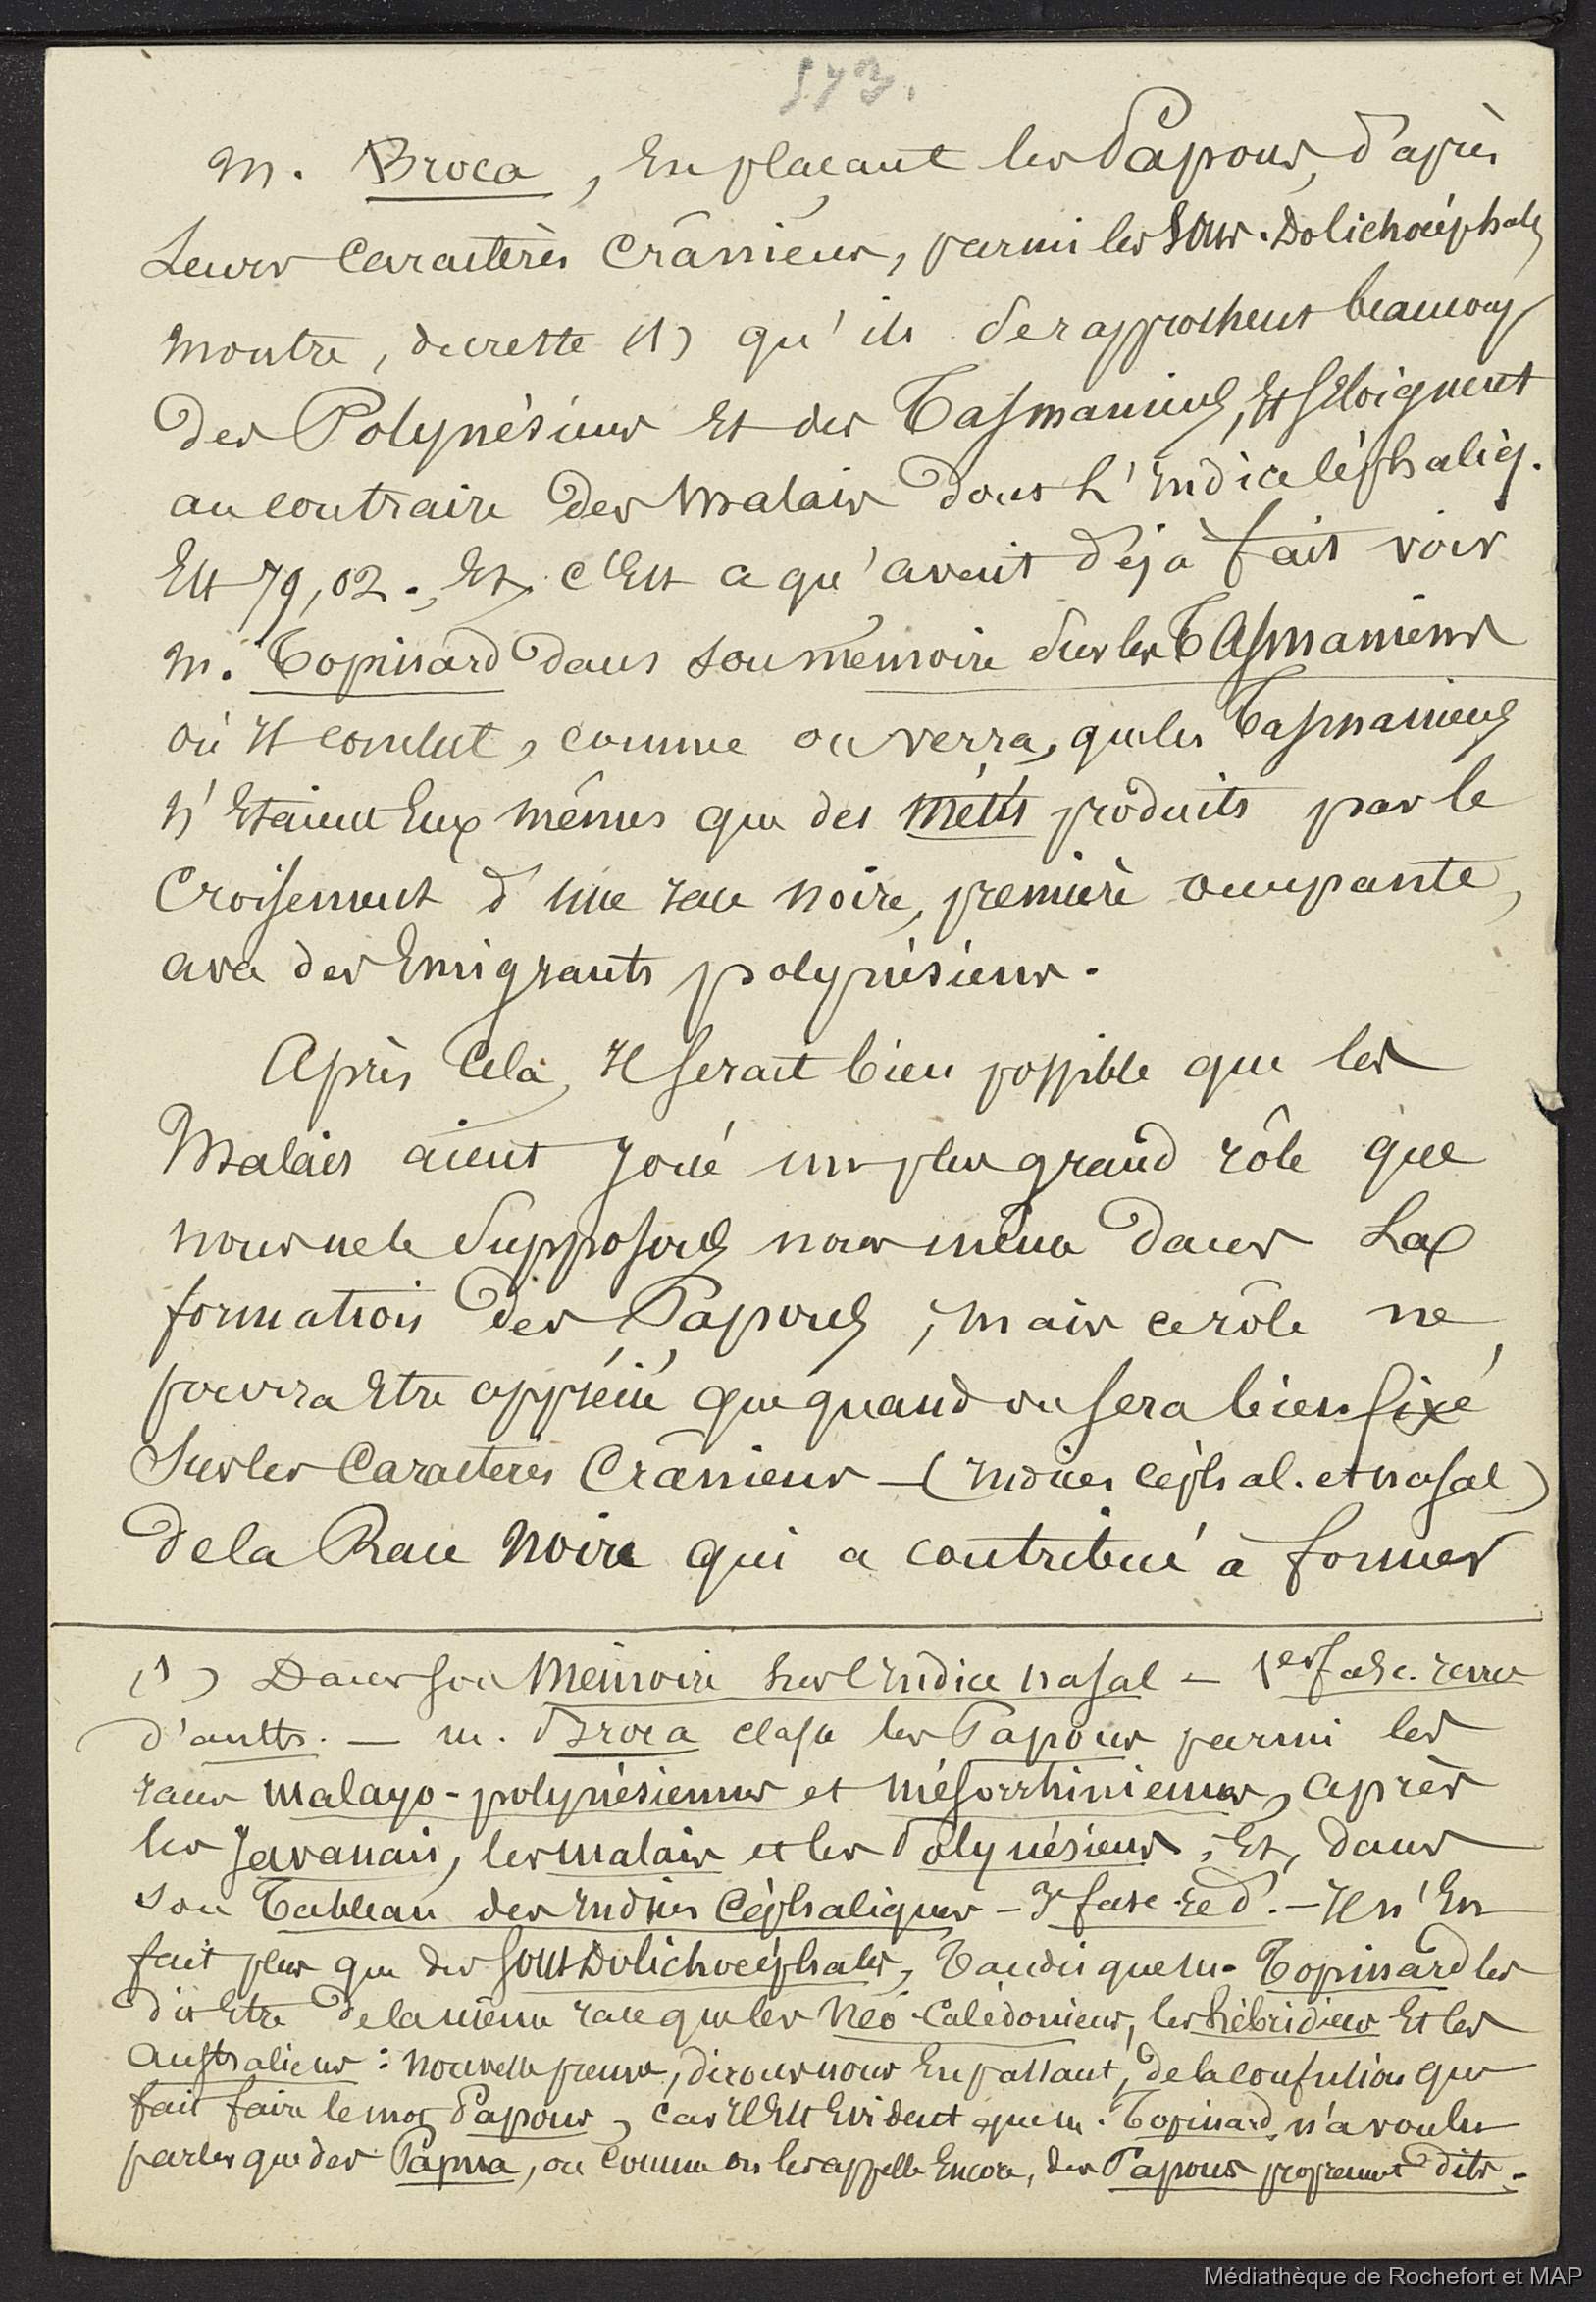 573.
M. Broca, en plaçant les Papous, d'après
Leurs Caractères Crâniens, parmi les Sous-Dolichocéphales
montre, du reste (1) qu'ils se rapprochent beaucoup
des Polynésiens et des Tasmaniens, et s'éloignent
au contraire des Malais dont l'indice céphaliq.
Est 79,02. Et, c'est ce qu'avait déjà fait voir
M. Topinard dans son mémoire sur les Tasmaniens
où il conclut, comme on verra, que les Tasmaniens
n'étaient Eux mêmes que des métis produits par le
Croisement d'une race noire, première occupante,
avec des Emigrants polynésiens.
Après Cela, il serait bien possible que les
Malais aient joué un plus grand rôle que
nous ne le supposons nous même dans La
formation des Papous ; mais ce rôle ne
pourra être apprécié que quand on sera bien fixé
Sur les Caractères Crâniens - (indices céphal. et nasal)
de la Race Noire qui a contribué à former
(1) Dans son Mémoire sur l'indice nasal - 1er fasc. revue
d'anth. - M. Broca classe les Papous parmi les
races malayo-polynésiennes et mésorrhiniennes, après
les Javanais, les malais et les Polynésiens ; Et, dans
son Tableau des indices Céphaliques - 3e fasc. - Il n'en
fait plus que des sous Dolichocéphales, Tandis que M. Topinard les
dit être de la même race que les Néo-Calédoniens, les hébridiens et les
Australiens : nouvelle preuve, dirons nous En passant, de la confusion que
fait faire le mot Papous, car il est évident que M. Topinard n'a voulu
parler que des Papua, ou comme on les appelle Encore, des Papous proprement dits.
Médiathèque de Rochefort et MAP